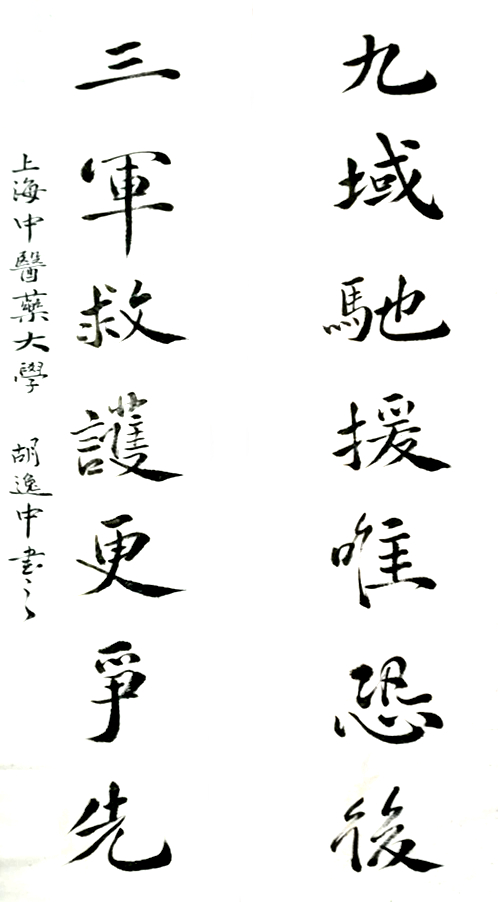 九域馳援唯恐後
三軍救護更爭先
上海中醫藥大學 胡逸中書之